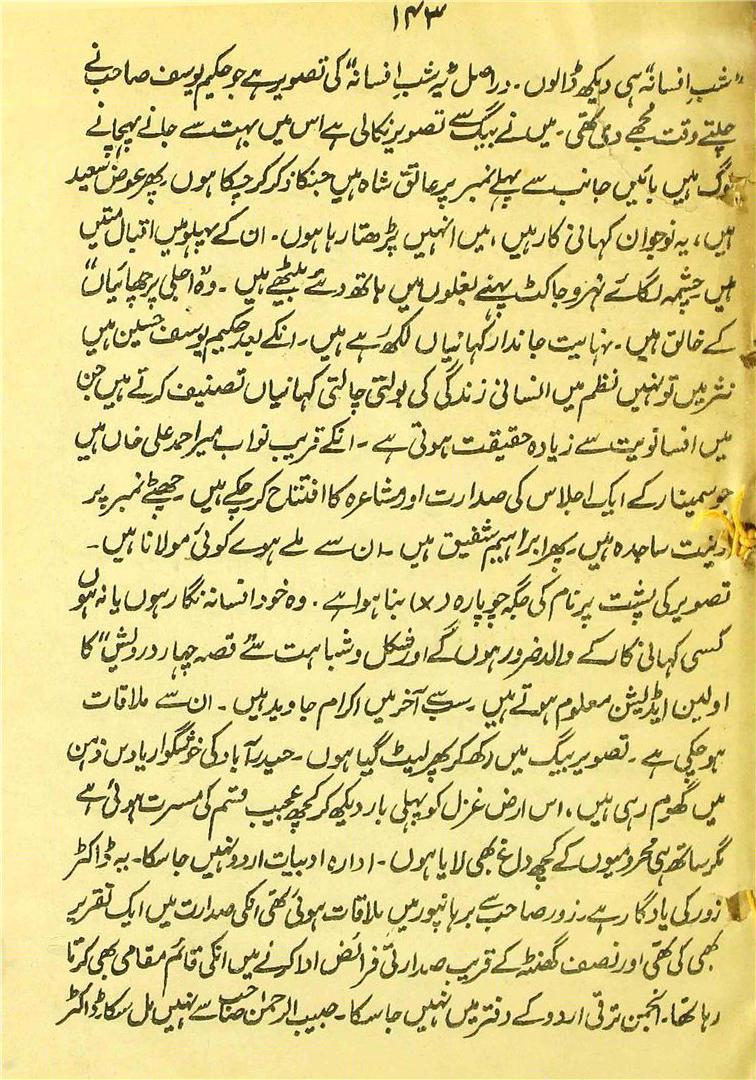 ۱۴۳
"شب افسانہ" ہی دیکھ ڈالوں۔ دراصل یہ "شب افسانہ" کی تصویر ہے جو حکیم یوسف صاحب نے
چلتے وقت مجھے دی تھی۔ میں نے بیگ سے تصویر نکالی ہے اس میں بہت سے جانے پہچانے
لوگ ہیں بائیں جانب سے پہلے نمبر پر عاتق شاہ ہیں جنکا ذکر کر چکا ہوں۔ پھر عوض سعید
ہیں، یہ نوجوان کہانی کار ہیں، میں انہیں پڑھتا رہا ہوں۔ ان کے پہلو میں اقبال متین
ہیں چشمہ لگائے نہرو جاکٹ پہنے بغلوں میں ہاتھ دئے بیٹھے ہیں۔ وہ "اجلی پرچھائیاں"
کے خالق ہیں۔ نہایت جاندار کہانیاں لکھ رہے ہیں۔ انکے بعد حکیم یوسف حسین ہیں
نثر میں تو نہیں نظم میں انسانی زندگی کی بولتی چالتی کہانیاں تصنیف کرتے ہیں جن
میں افسانویت سے زیادہ حقیقت ہوتی ہے۔ انکے قریب نواب میر احمد علی خاں ہیں
جو سمینار کے ایک اجلاس کی صدارت اور مشاعرہ کا افتتاح کر چکے ہیں۔ چھٹے نمبر پر
زینت ساجدہ ہیں۔ پھر ابراہیم شفیق ہیں۔ ان سے ملے ہوے کوئی مولانا ہیں۔
تصویر کی پشت پر نام کی جگہ چوپارہ (×) بنا ہوا ہے۔ وہ خود افسانہ نگار ہوں یا نہ ہوں
کسی کہانی کار کے والد ضرور ہوں گے اور شکل و شباہت سے "قصہ چہار درویش" کا
اولین ایڈیشن معلوم ہوتے ہیں۔ سب سے آخر میں اکرام جاوید ہیں۔ ان سے ملاقات
ہو چکی ہے۔ تصویر بیگ میں رکھ کر پھر لیٹ گیا ہوں۔ حیدرآباد کی خوشگوار یادیں ذہن
میں گھوم رہی ہیں، اس ارض غزل کو پہلی بار دیکھ کر کچھ عجیب قسم کی مسرت ہوئی ہے
مگر ساتھ ہی محرومیوں کے کچھ داغ بھی لایا ہوں۔ ادارہ ادبیات اردو نہیں جا سکا۔ یہ ڈاکٹر
زور کی یادگار ہے۔ زور صاحب سے برہانپور میں ملاقات ہوئی تھی انکی صدارت میں ایک تقریر
بھی کی تھی اور نصف گھنٹہ کے قریب صدارتی فرائض ادا کرنے میں انکی قائم مقامی بھی کرتا
رہا تھا۔ انجمن ترقی اردو کے دفتر میں نہیں جا سکا۔ حبیب الرحمن صاحب سے نہیں مل سکا۔ ڈاکٹر